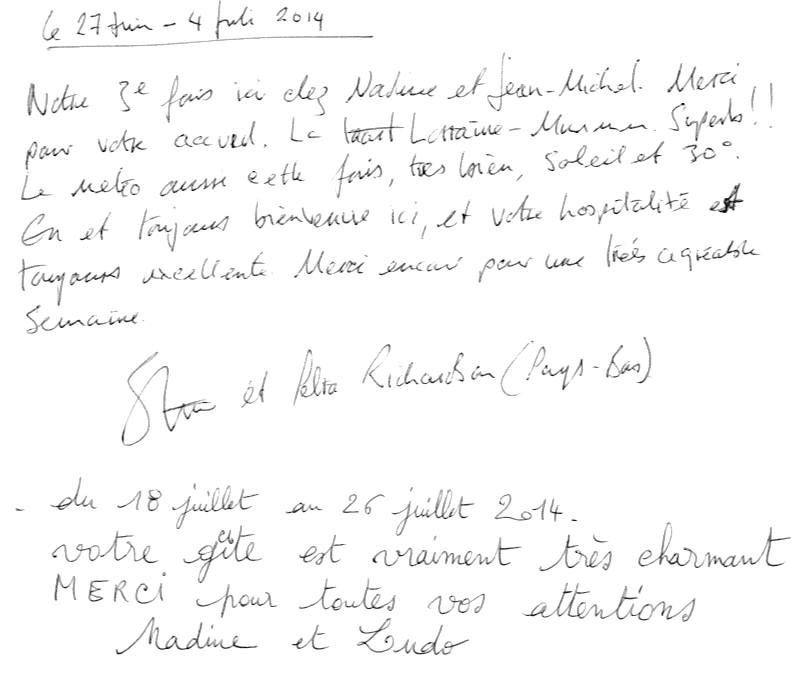 le 27 Juin - 4 Juli 2014
Notre 3e fois ici chez Nadine et Jean-Michel. Merci
pour votre accueil. La Lorraine - Superbe!!
Le météo aussi cette fois, très bien, Soleil et 30°.
En et toujours bienvenue ici, et votre hospitalité est
toujours excellente. Merci encour pour une très agréable
Semaine.
et Petra Richardson (Pays-Bas)
- du 18 juillet au 26 juillet 2014.
votre gîte est vraiment très charmant
MERCI pour toutes vos attentions
Nadine et Ludo